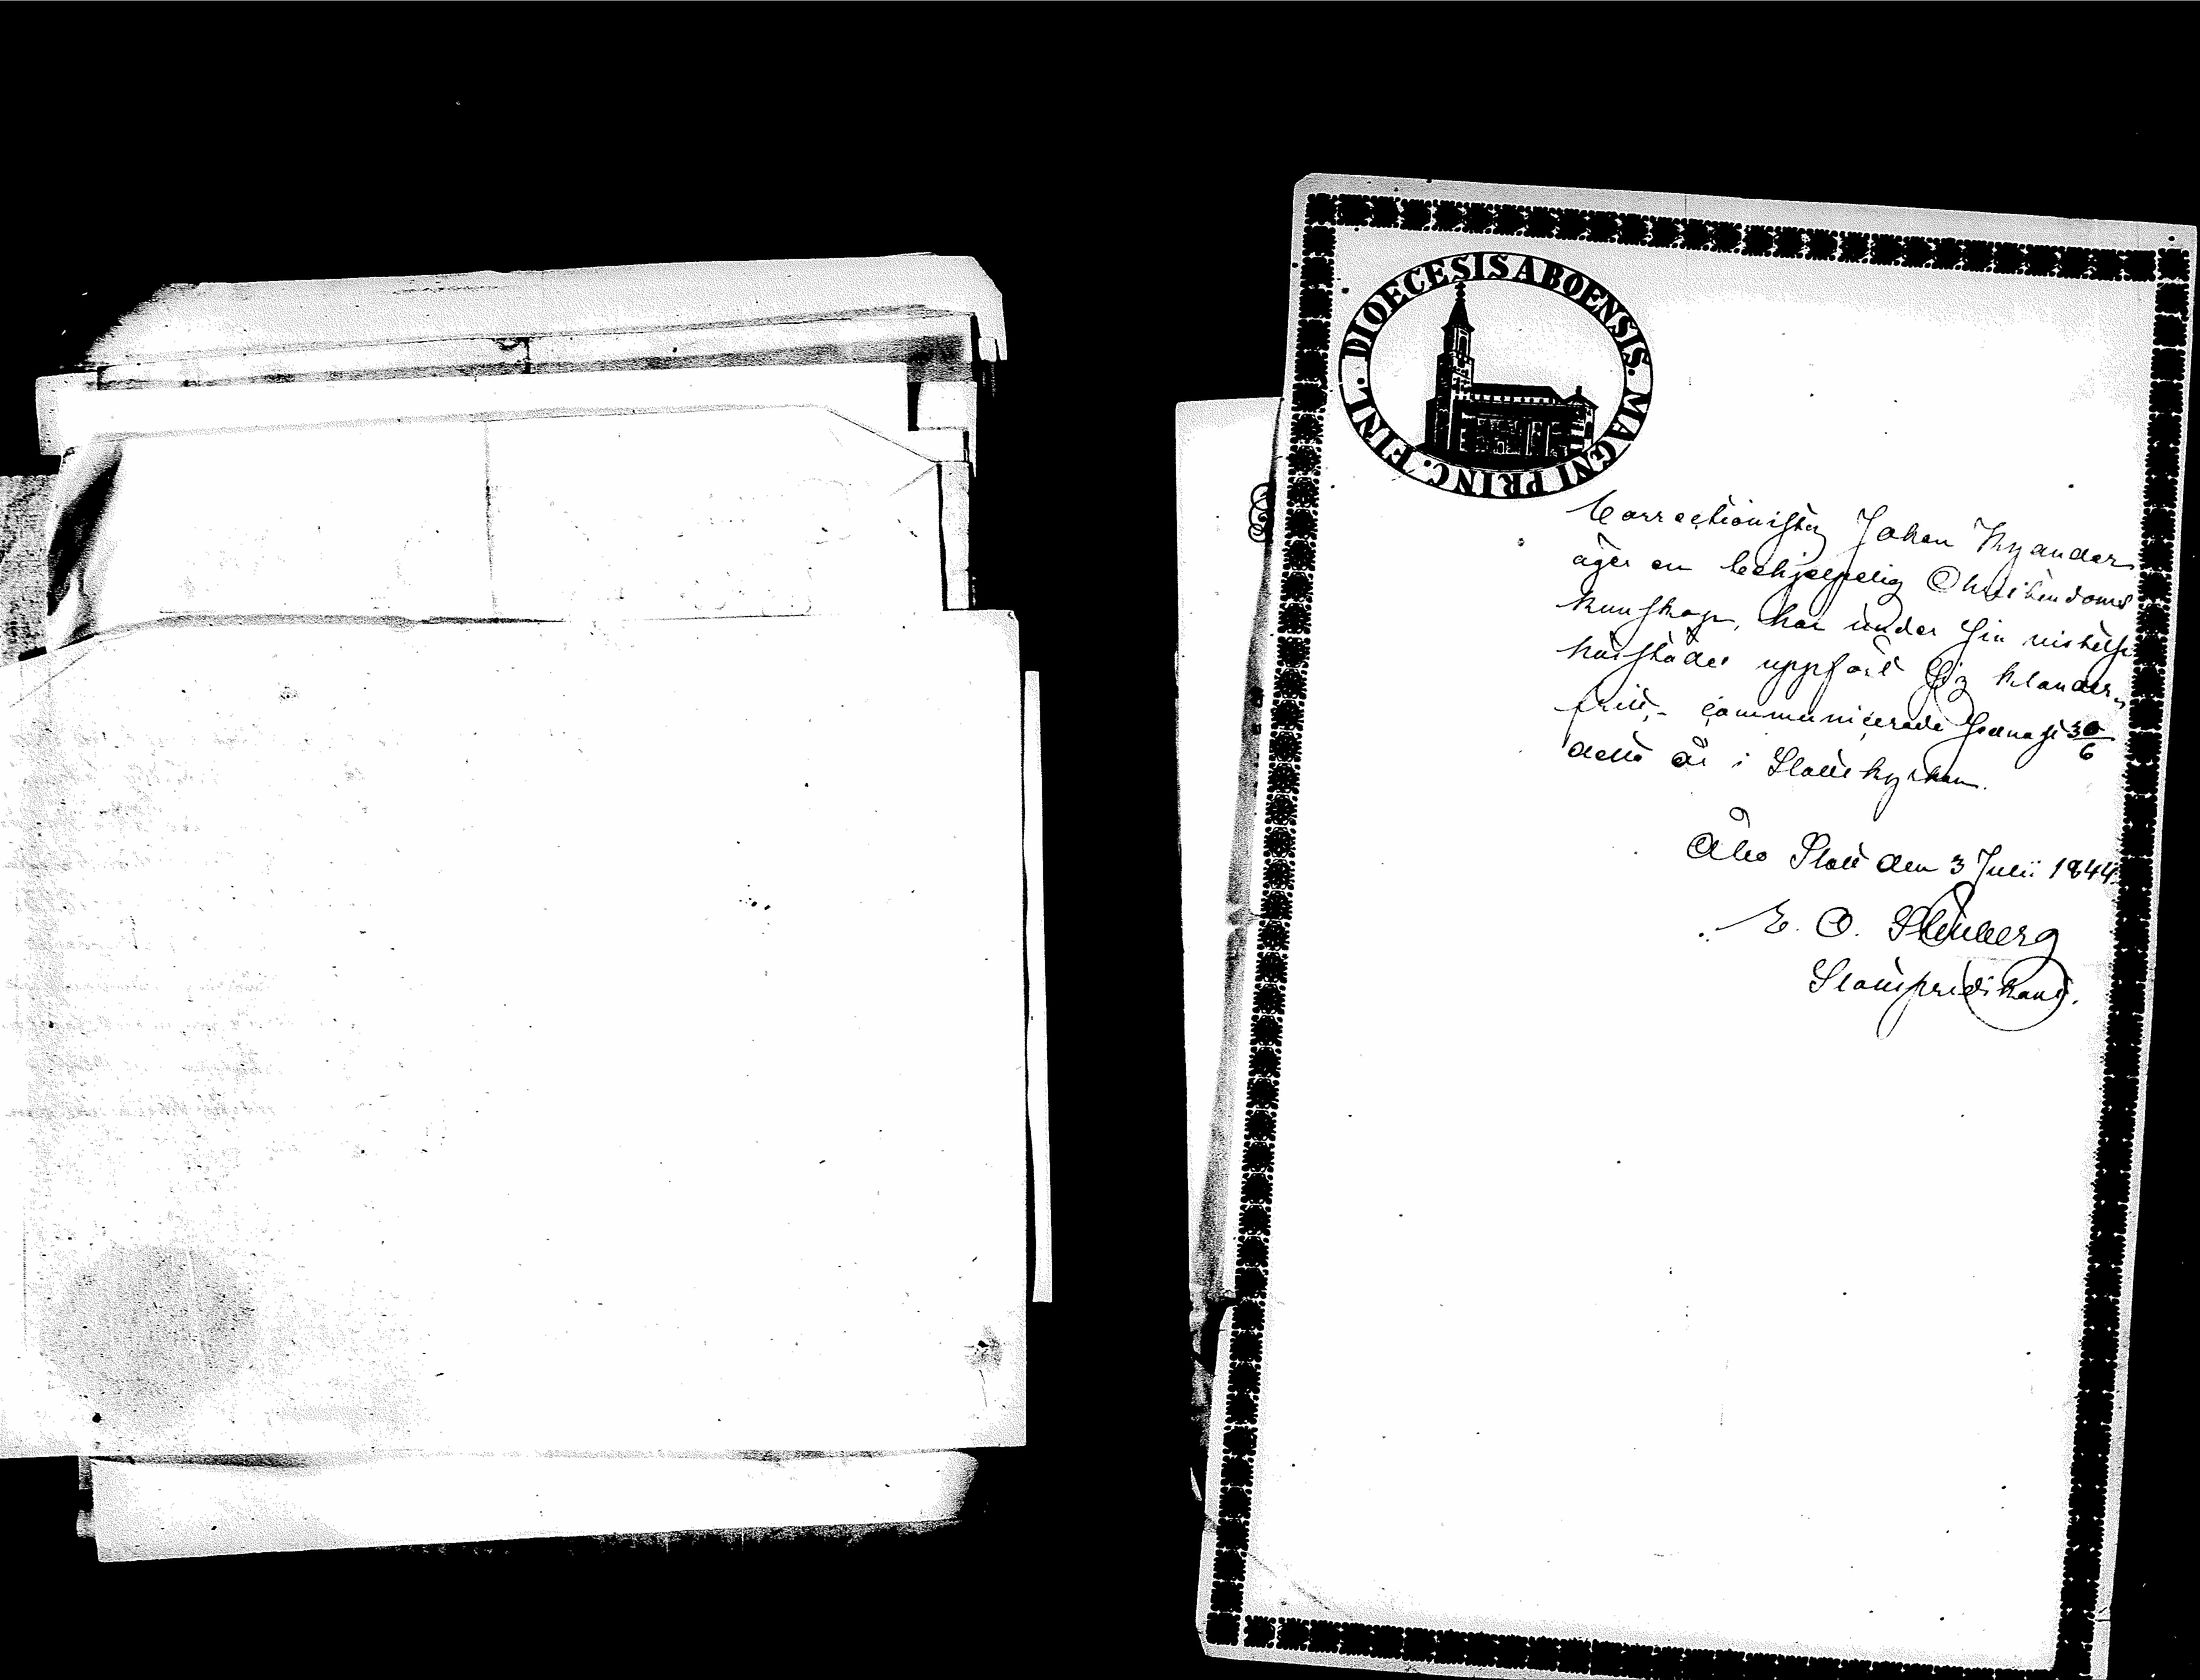 DIOECESIS ABOENSIS. MAGNI PRINC. FINL.
Correctionisten Johan Kyander
äger en behjelpelig Christendoms
kunskap, har under sin vistelse
härstädes uppfört sig klander-
fritt, - communicerade senast 30/6
detta år i Slottskyrkan.
Åbo Slott den 3 Julii 1844.
E. O. Stenberg
Slottspredikant.